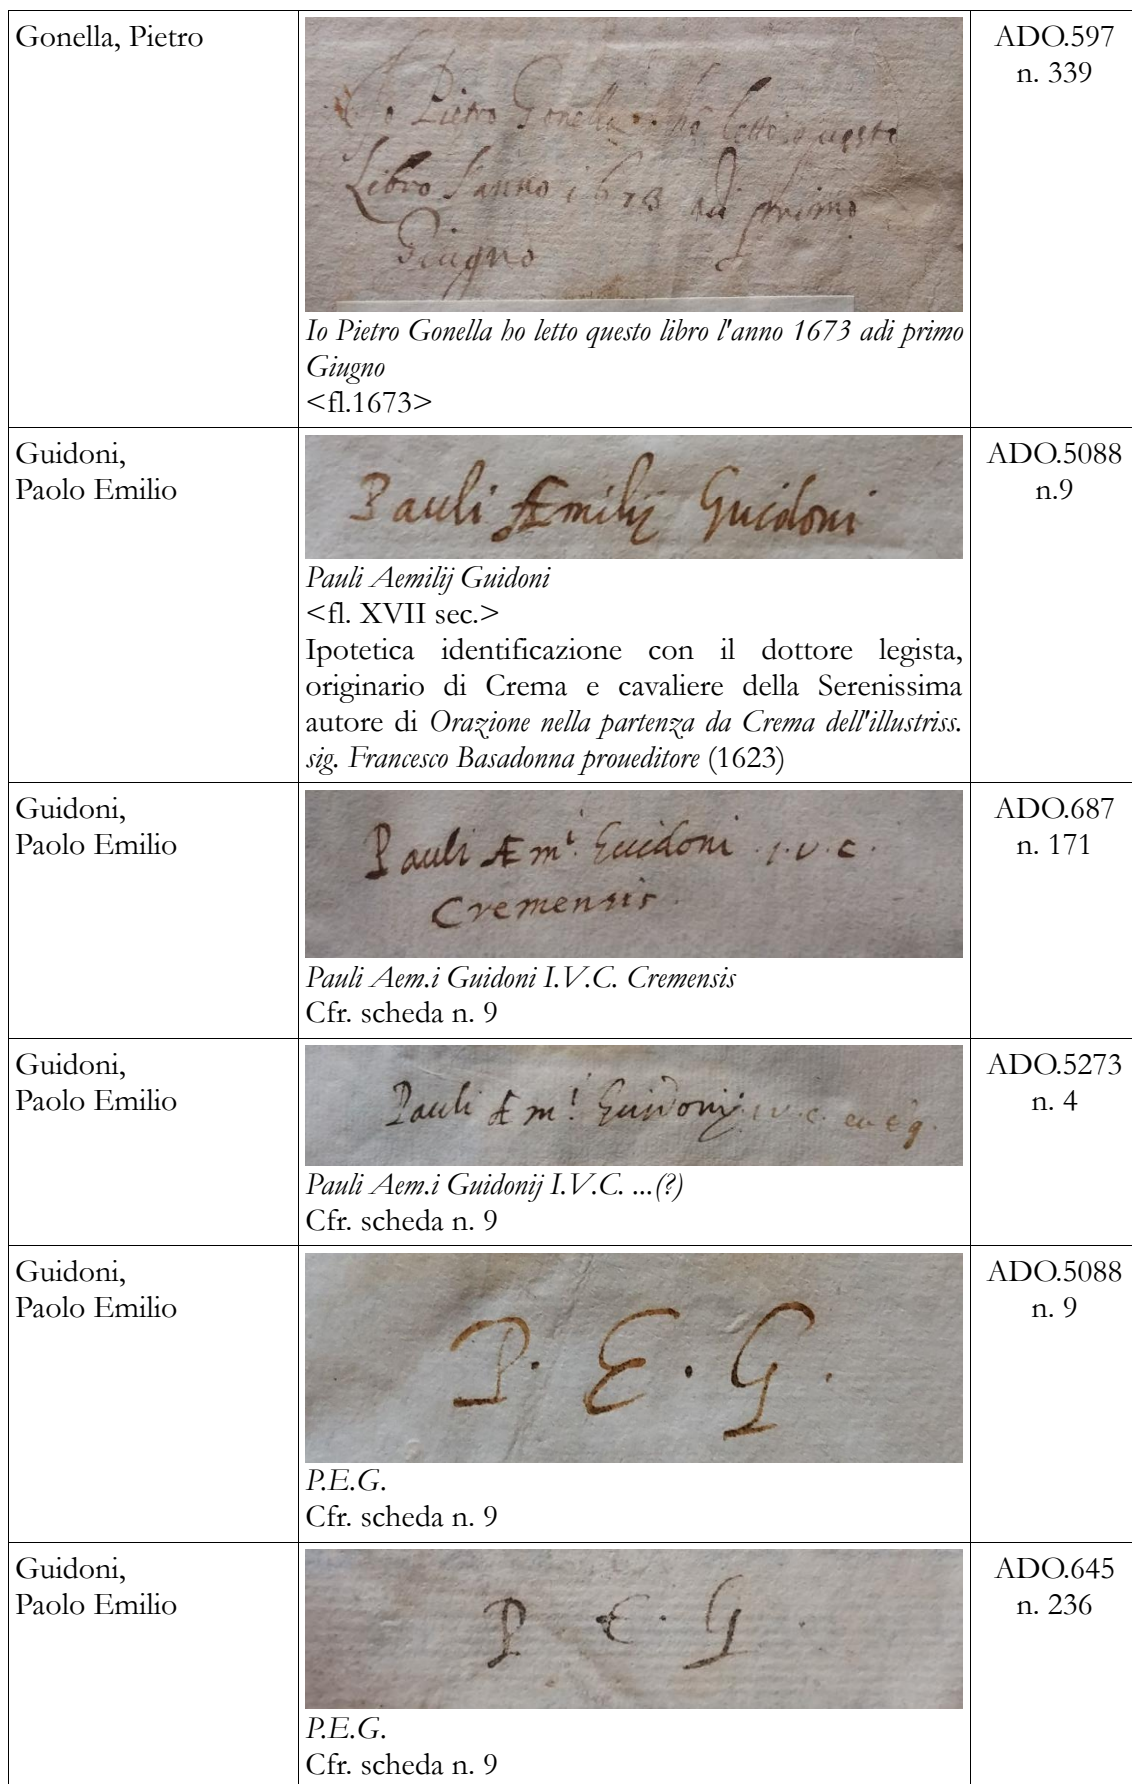 Gonella, Pietro
Io Pietro Gonella ho letto questo
Libro l'anno 1673 adi primo
Giugno
Io Pietro Gonella ho letto questo libro l'anno 1673 adi primo
Giugno
<fl.1673>
ADO.597
n. 339
Guidoni,
Paolo Emilio
Pauli Æmilij Guidoni
Pauli Aemilij Guidoni
<fl. XVII sec.>
Ipotetica identificazione con il dottore legista,
originario di Crema e cavaliere della Serenissima
autore di Orazione nella partenza da Crema dell'illustriss.
sig. Francesco Basadonna proueditore (1623)
ADO.5088
n.9
Guidoni,
Paolo Emilio
Pauli Æm.i Guidoni .I.V.C.
Cremensis.
Pauli Aem.i Guidoni I.V.C. Cremensis
Cfr. scheda n. 9
ADO.687
n. 171
Guidoni,
Paolo Emilio
Pauli Æm.i Guidonij I.V.C.
Pauli Aem.i Guidonij I.V.C. ...(?)
Cfr. scheda n. 9
ADO.5273
n. 4
Guidoni,
Paolo Emilio
P. E. G.
P.E.G.
Cfr. scheda n. 9
ADO.5088
n. 9
Guidoni,
Paolo Emilio
P E. G.
P.E.G.
Cfr. scheda n. 9
ADO.645
n. 236